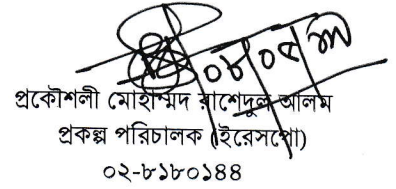 প্রকৌশলী মোহাম্মদ রাশেদুল আলম
প্রকল্প পরিচালক (ইরেসপো)
০২-৮১৮০১৪৪